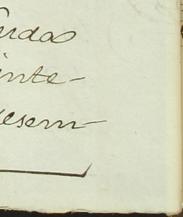 erdas
inte-
esem-